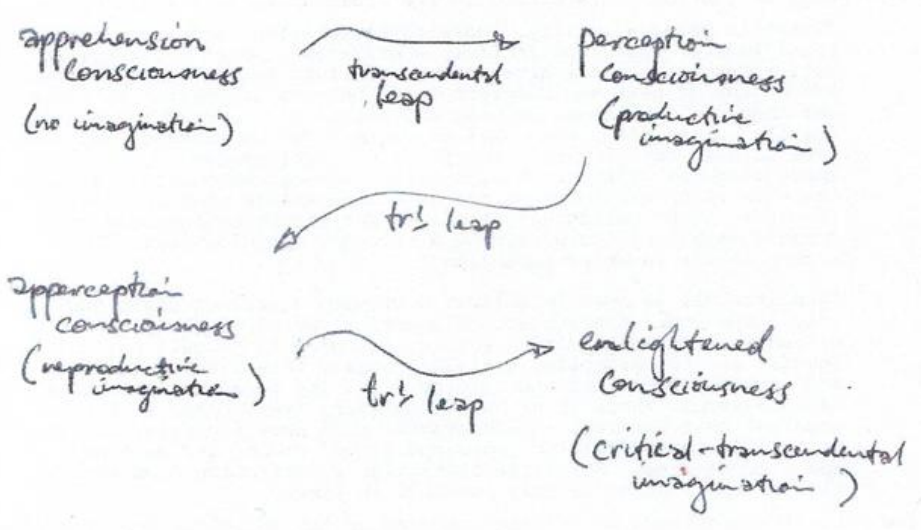 apprehension
consciousness
(no imagination)
transcendental
leap
perception
consciousness
(productive
imagination)
tr'l leap
apperception
consciousness
(reproductive
imagination)
tr'l leap
enlightened
consciousness
(critical-transcendental
imagination)